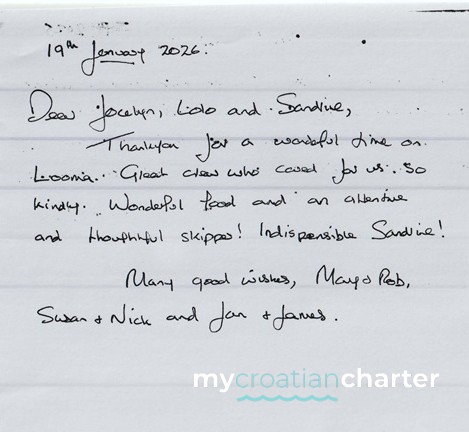 19th January 2026.
Dear Jocelyn, Lolo and Sandrine,
Thankyou for a wonderful time on
Loonia. Great crew who cared for us so
kindly. Wonderful food and an attentive
and thoughtful skipper! Indispensible Sandrine!
Many good wishes, Mary & Rob,
Susan & Nick and Jan & James.
mycroatiancharter